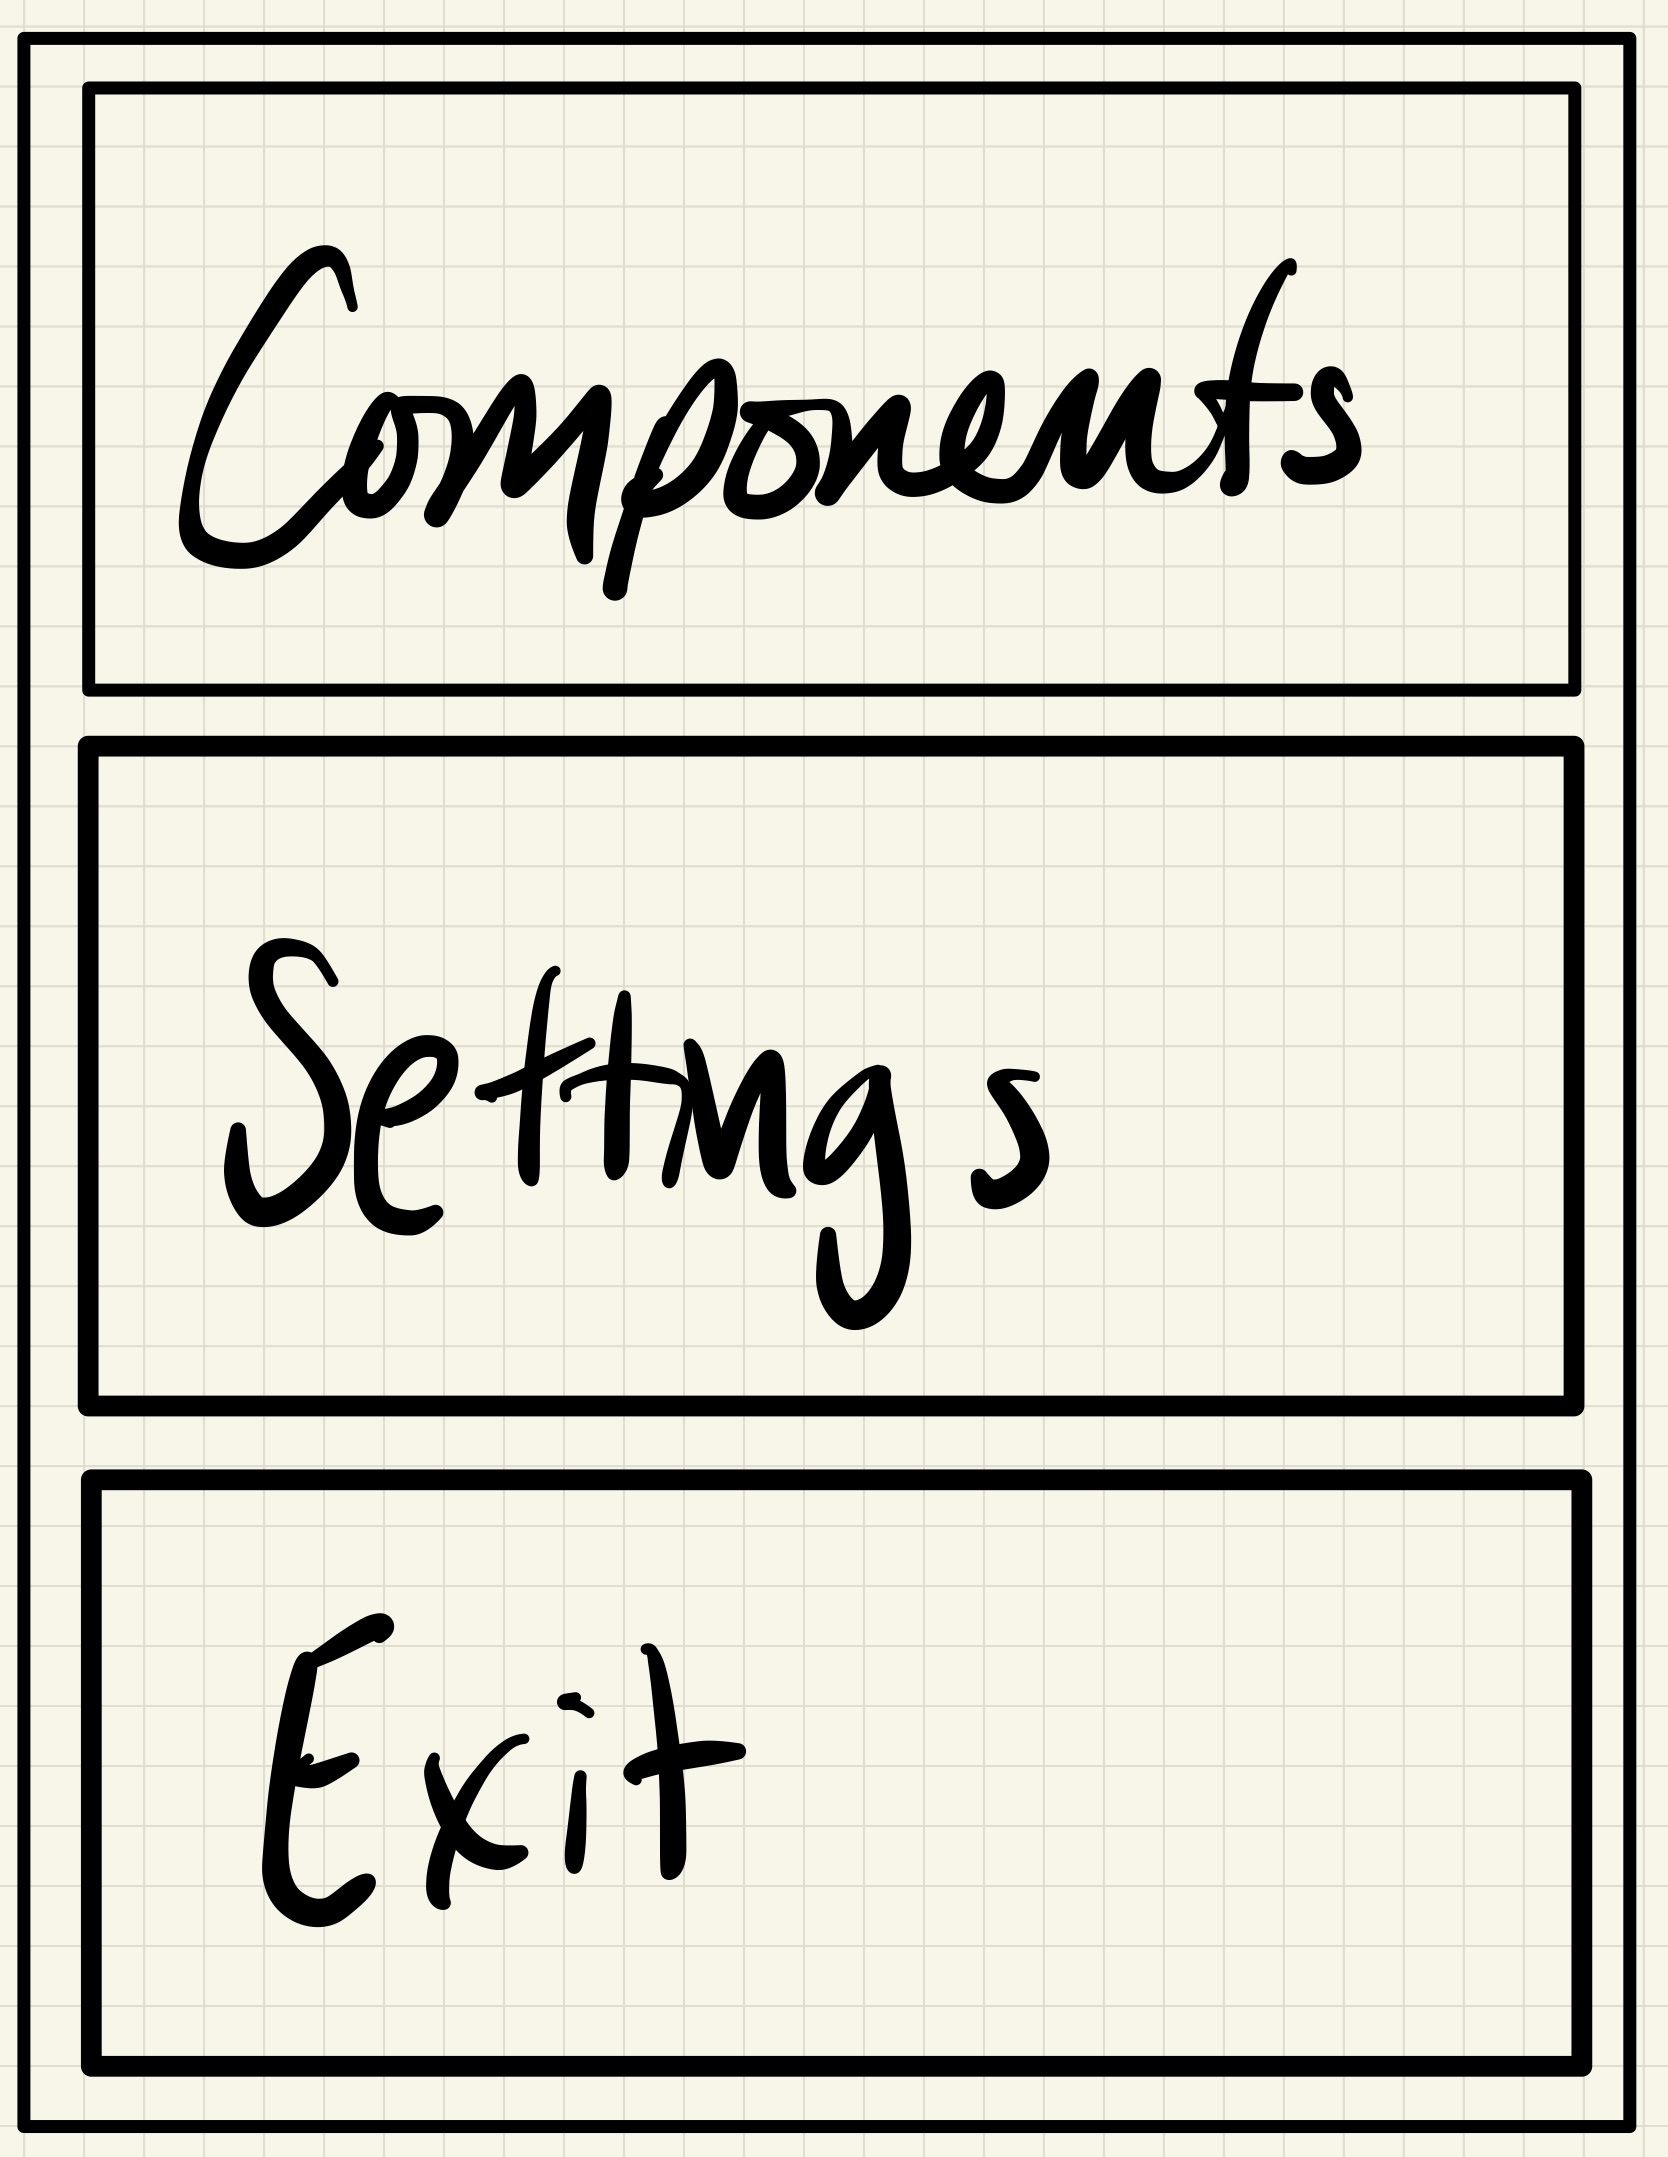 Components
Settings
Exit